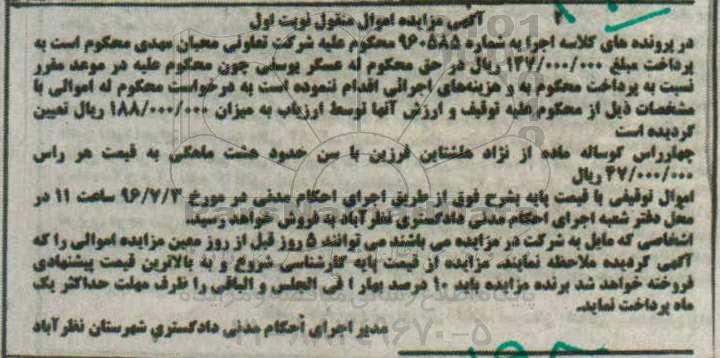 آگهی مزایده اموال منقول نوبت اول
در پرونده های کلاسه اجرا به شماره ۹۶۰۵۸۵ محکوم علیه شرکت تعاونی محبان مهدی محکوم است به
پرداخت مبلغ ۱۳۷/۰۰۰/۰۰۰ ریال در حق محکوم له عسگر یوسفی چون محکوم علیه در موعد مقرر
نسبت به پرداخت محکوم به و هزینه‌های اجرائی اقدام ننموده است به درخواست محکوم له اموالی با
مشخصات ذیل از محکوم علیه توقیف و ارزش آنها توسط ارزیاب به میزان ۱۸۸/۰۰۰/۰۰۰ ریال تعیین
گردیده است
چهارراس گوساله ماده از نژاد هلشتاین فرزین با سن حدود هشت ماهگی به قیمت هر راس
۴۷/۰۰۰/۰۰۰ ریال
اموال توقیفی با قیمت پایه بشرح فوق از طریق اجرای احکام مدنی در مورخ ۹۶/۷/۳ ساعت ۱۱ در
محل دفتر شعبه اجرای احکام مدنی دادگستری نظرآباد به فروش خواهد رسید.
اشخاصی که مایل به شرکت در مزایده می باشند می توانند ۵ روز قبل از روز معین مزایده اموالی را که
آگهی گردیده ملاحظه نمایند. مزایده از قیمت پایه کارشناسی شروع و به بالاترین قیمت پیشنهادی
فروخته خواهد شد برنده مزایده باید ۱۰ درصد بهار ا فی المجلس و الباقی را ظرف مهلت حداکثر یک
ماه پرداخت نماید.
مدیر اجرای احکام مدنی دادگستری شهرستان نظرآباد